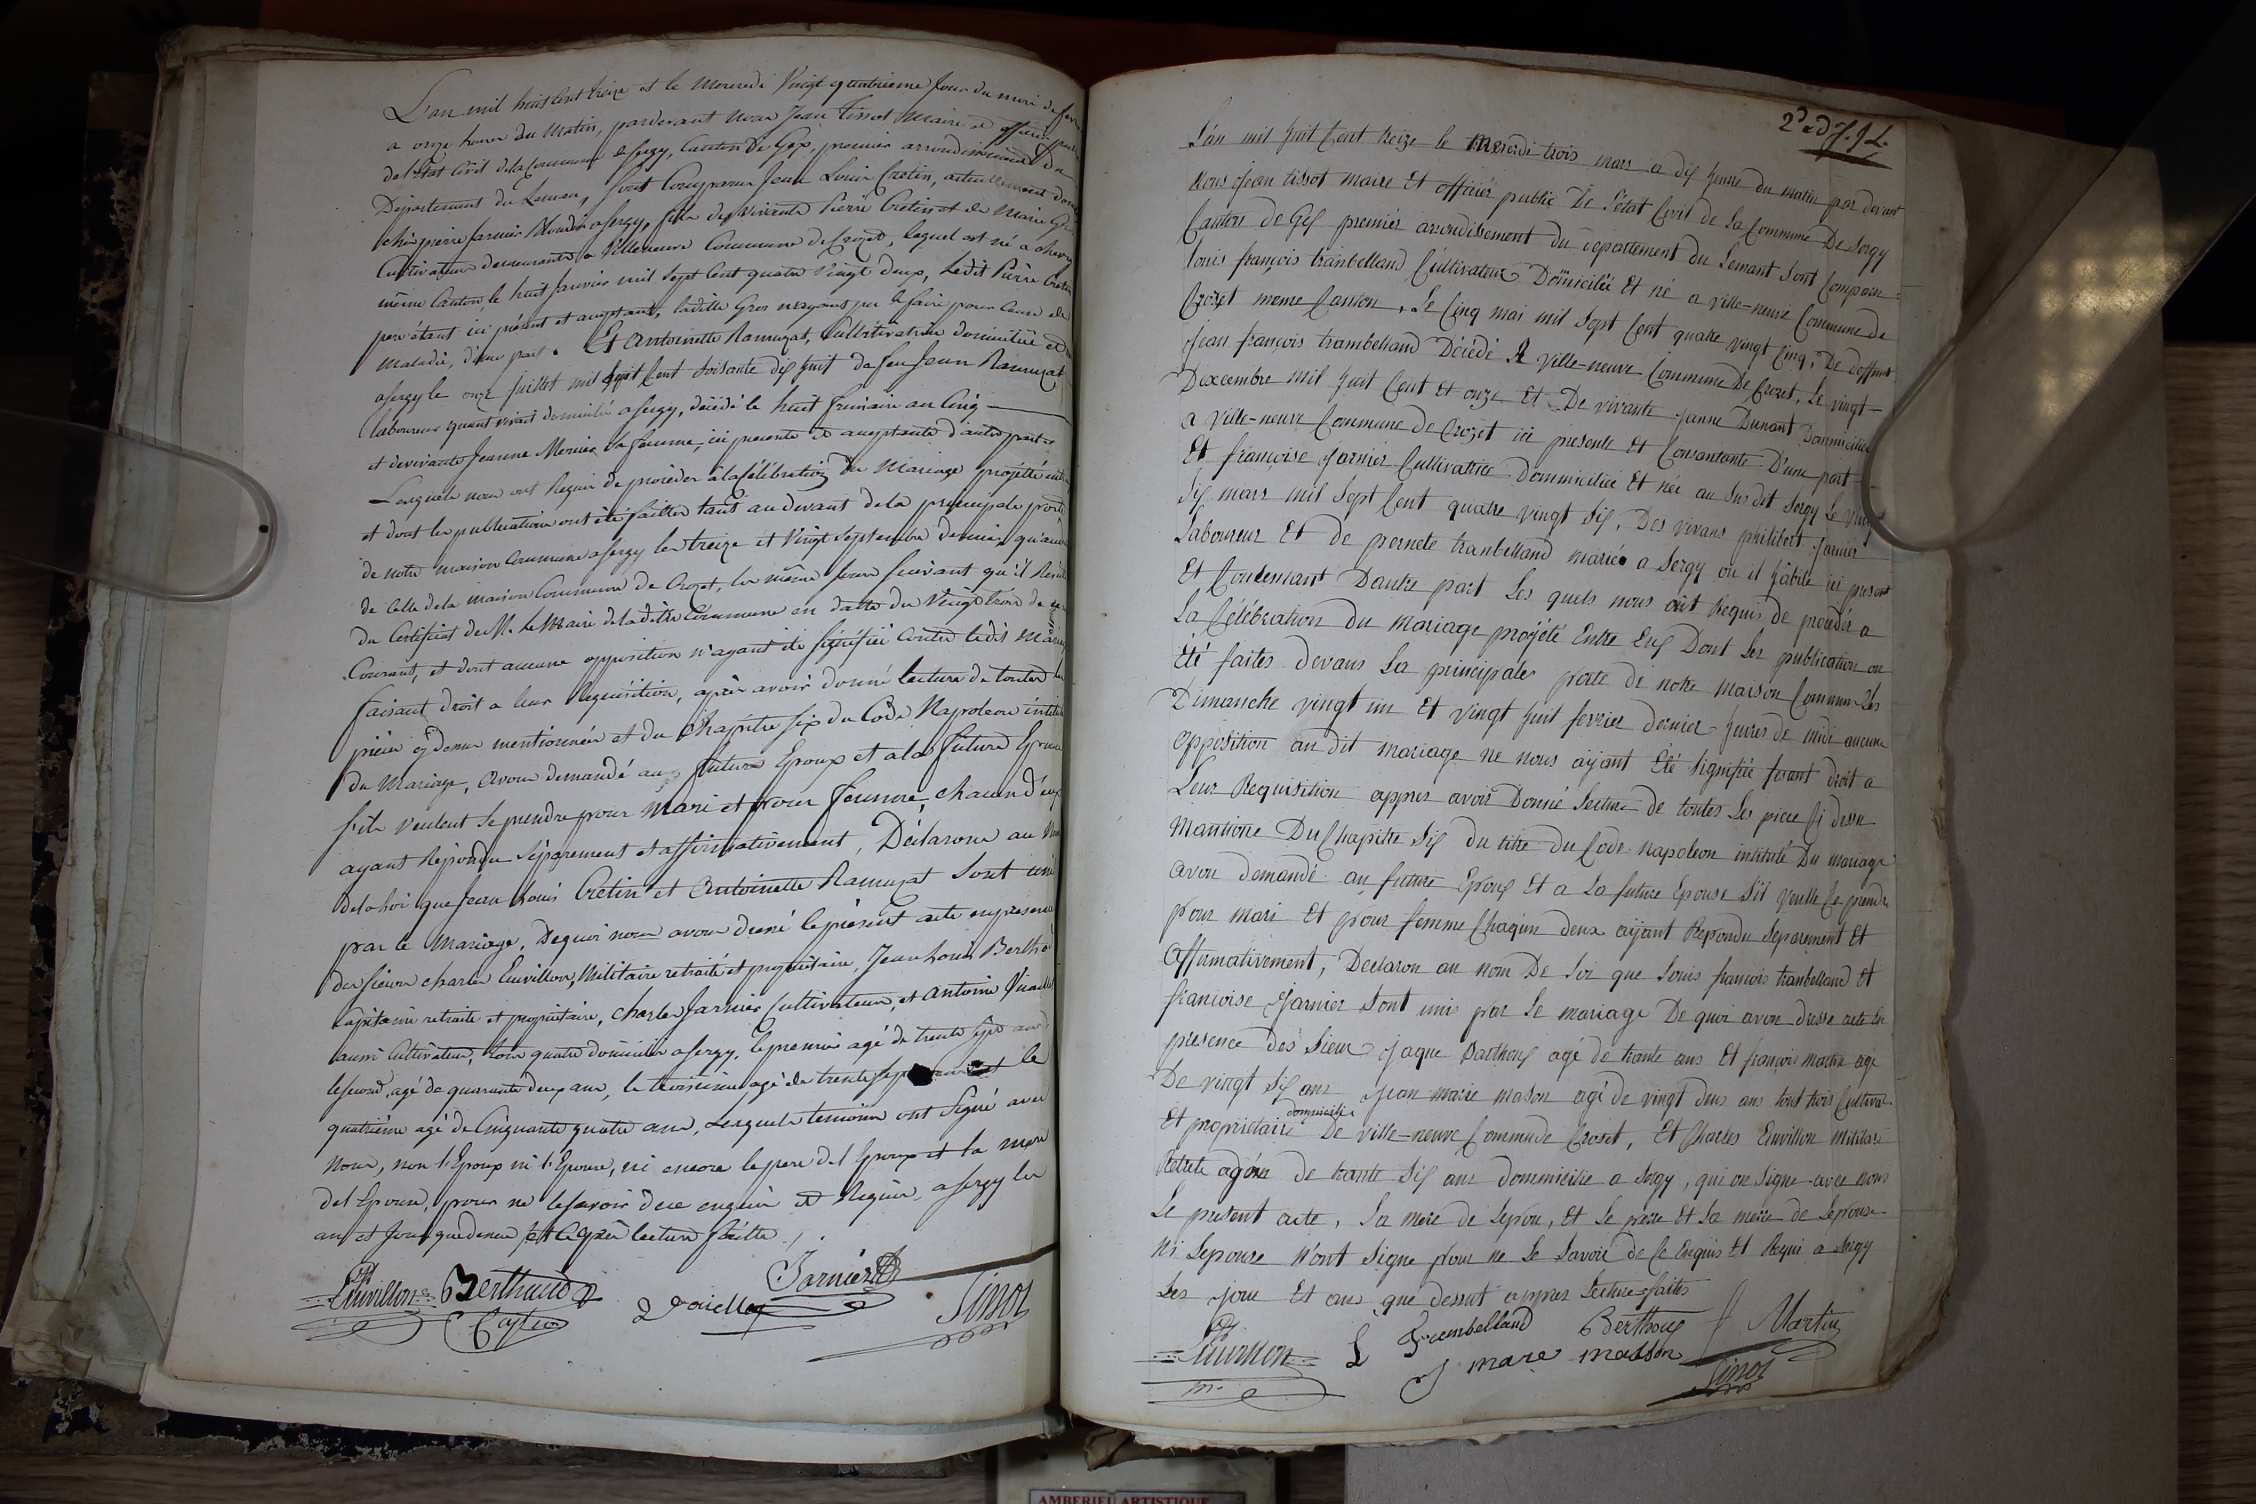 L'an mil huit Cent treize et le Mercredi Vingt quatrieme Jour du mois de
a onze heures du Matin, pardevant Nous Jean Tissot Maire et officier
de l'Etat Civil de la Commune de Sergy, Canton de Gex, premier arrondissement du
Département du Leman, sont Comparus Jean Louis Cretin, actuellement
chés pierre Jarnier Meunier a Sergy, fils des vivants Pierre Cretin et de Marie Gros
Cultivateurs demeurants a Villeneuve Commune de Crozet, lequel est né a
même Canton, le huit Janvier mil sept Cent quatre Vingt deux, Ledit Pierre Cretin
pere étant ici présent et acceptant, ladite Gros n'ayant pu le faire pour Cause de
Maladie, d'une part. Et Antoinette Ramuzat, Cultivatrice domiciliée et
a Sergy le onze Juillet mil sept Cent soixante dix huit de feu Jean Ramuzat
laboureur quand vivait domicilié a Sergy, décédé le huit frimaire an Cinq
et de vivante Jeanne Mercier sa femme, ici presente et acceptante d'autre part
Lesquels nous ont Requis de procéder à la Célébration du Mariage projetté
et dont les publications ont été faittes tant au devant de la principale porte
de notre maison Commune a Sergy les treize et Vingt Septembre dernier, qu'au
de Celle de la maison Commune de Crozet, les même jours suivant qu'il Résulte
du Certificat de M. le Maire de la ditte Commune en datte du Vingt trois de
Courant, et dont aucune opposition n'ayant été signifiée Contre ledit Mariage
faisant droit a leur Requisition, après avoir donné lecture de toutes les
pièces cy dessus mentionnées et du Chapitre six du Code Napoleon intitulé
du Mariage, avons demandé au futur Epoux et a la future Epouse
s'ils veulent se prendre pour Mari et pour femme, chacun d'eux
ayant Répondu séparement et affirmativement, Déclarons au Nom
de la loi que Jean Louis Cretin et Antoinette Ramuzat sont unis
par le Mariage, De quoi nous avons dressé le présent acte en presence
des sieurs charles Emvillon, Militaire retraité et propriétaire, Jean Louis Berthe
Capitaine retraité et propriétaire, charles Jarnier Cultivateur, et antoine
aussi Cultivateur, tous quatre domiciliés a Sergy, le premier agé de trente sept ans
le second, agé de quarante deux ans, le troisieme agé de trente sept ans et le
quatrième agé de Cinquante quatre ans, Lesquels temoins ont signé avec
Nous, non l'Epoux ni l'Epouse, ni encore le pere de l'Epoux et la mere
de l'Epouse, pour ne le savoir de ce enquis et Requis, a Sergy les
an et Jour que dessus et après lecture faitte
Emvillon Berthaud Jarnier
Capne Tissot
2d et d J.J L.
L'an mil huit Cent treize le Mercredi trois mars a dix heures du matin par devant
Nous Jean tissot maire Et officier public De L'état Civil de La Commune De Sergy
Canton de Gex premier arrondissement du département du Lemant Sont Comparu=
louis françois tranbelland Cultivateur Domicilié Et né a ville-neuve Commune de
Crozet meme Canton, Le Cinq mai mil Sept Cent quatre vingt Cinq, De deffunt
Jean françois trambelland Décédé A ville-neuve Commune De Crozet, Le vingt-
Dexcembre mil huit Cent Et onze Et De vivante Janne Dunant Dommiciliée
a ville-neuve Commune de Crozet ici presente Et Consantante D'une part
Et françoise Jarnier Cultivattrice Dommiciliée Et née au Sus dit Sergy Le vingt
Six mars mil Sept Cent quatre vingt Six, Des vivans philibert Jarnier
Laboureur Et de pernete tranbelland mariés a Sergy ou il habite ici present
Et Consentant Dautre part Les quels nous ont Requis de procéder a
La Célébration du mariage projété Entre Eux Dont Les publication on
Eté faites devans La principale porte de notre maison Commune Les
Dimanche vingt un Et vingt huit fevrier dernier heures de midi aucune
Opposition au dit mariage ne nous aÿant Eté signifiée fesant droit a
Leur Requisition appres avoir Donné Lecture de toutes Les piece Ci dessu
Mantione Du Chapitre Six du titre du Code napoleon intitulé Du mariage
avon demandé au future Epoux Et a La future Epouse S'il veulle Ce prendre
pour mari Et pour femme Chaqun deux aÿant Repondu Separement Et
Affirmativement, Declaron au nom De Loi que Louis francois tranbelland Et
francoise Jarnier Sont unis par Le mariage De quoi avon dressé acte En
presence des Sieur Jaque Barthoux agé de trante ans Et françois martin agé
De vingt Six ans Jean marie mason agé de vingt deux ans tout trois Cultivat
Et propriétaire domicilié De ville-neuve Commude Croset, Et Charles Emvillon militaire
Retrété agé de trante Six ans dommicilié a Sergy, qui on Signe avec nous
Le present acte, La mere de Lepou, Et Le perre Et La meire de Lepouse
Ni Lepouse N'ont Signe pour ne Le Savoir de Ce Enquis Et Requi a Sergy
Les jour Et ans que dessut appres Lecture faites
Emvillon L Trembelland Berthoux F Martin
J marie masson Tissot
AMBERIEU ARTISTIQUE